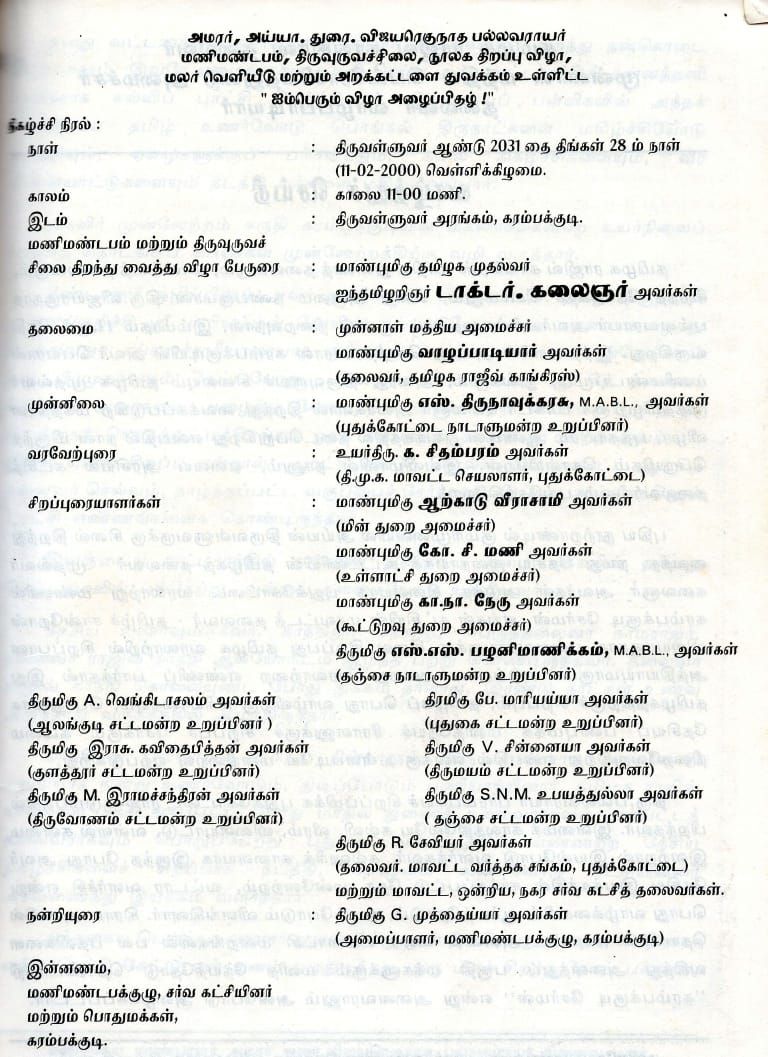 அமரர், அய்யா. துரை. விஜயரெகுநாத பல்லவராயர்
மணிமண்டபம், திருவுருவச்சிலை, நூலக திறப்பு விழா,
மலர் வெளியீடு மற்றும் அறக்கட்டளை துவக்கம் உள்ளிட்ட
" ஐம்பெரும் விழா அழைப்பிதழ் !"
நிகழ்ச்சி நிரல் :
நாள் : திருவள்ளுவர் ஆண்டு 2031 தை திங்கள் 28 ம் நாள்
(11-02-2000) வெள்ளிக்கிழமை.
காலம் : காலை 11-00 மணி.
இடம் : திருவள்ளுவர் அரங்கம், கரம்பக்குடி.
மணிமண்டபம் மற்றும் திருவுருவச்
சிலை திறந்து வைத்து விழா பேருரை : மாண்புமிகு தமிழக முதல்வர்
ஐந்தமிழறிஞர் டாக்டர். கலைஞர் அவர்கள்
தலைமை : முன்னாள் மத்திய அமைச்சர்
மாண்புமிகு வாழப்பாடியார் அவர்கள்
(தலைவர், தமிழக ராஜீவ் காங்கிரஸ்)
முன்னிலை : மாண்புமிகு எஸ். திருநாவுக்கரசு, M.A.B.L., அவர்கள்
(புதுக்கோட்டை நாடாளுமன்ற உறுப்பினர்)
வரவேற்புரை : உயர்திரு. க. சிதம்பரம் அவர்கள்
(தி.மு.க. மாவட்ட செயலாளர், புதுக்கோட்டை)
சிறப்புரையாளர்கள் : மாண்புமிகு ஆற்காடு வீராசாமி அவர்கள்
(மின் துறை அமைச்சர்)
மாண்புமிகு கோ. சி. மணி அவர்கள்
(உள்ளாட்சி துறை அமைச்சர்)
மாண்புமிகு கா.நா. நேரு அவர்கள்
(கூட்டுறவு துறை அமைச்சர்)
திருமிகு எஸ்.எஸ். பழனிமாணிக்கம், M.A.B.L., அவர்கள்
(தஞ்சை நாடாளுமன்ற உறுப்பினர்)
திருமிகு A. வெங்கிடாசலம் அவர்கள் திரமிகு பே.மாரியய்யா அவர்கள்
(ஆலங்குடி சட்டமன்ற உறுப்பினர் ) (புதுகை சட்டமன்ற உறுப்பினர்)
திருமிகு இராசு. கவிதைபித்தன் அவர்கள் திருமிகு V. சின்னையா அவர்கள்
(குளத்தூர் சட்டமன்ற உறுப்பினர்) (திருமயம் சட்டமன்ற உறுப்பினர்)
திருமிகு M. இராமச்சந்திரன் அவர்கள் திருமிகு S.N.M. உபயத்துல்லா அவர்கள்
(திருவோணம் சட்டமன்ற உறுப்பினர்) ( தஞ்சை சட்டமன்ற உறுப்பினர்)
திருமிகு R. சேவியர் அவர்கள்
(தலைவர். மாவட்ட வர்த்தக சங்கம், புதுக்கோட்டை)
மற்றும் மாவட்ட, ஒன்றிய, நகர சர்வ கட்சித் தலைவர்கள்.
நன்றியுரை : திருமிகு G. முத்தைய்யர் அவர்கள்
(அமைப்பாளர், மணிமண்டபக்குழு, கரம்பக்குடி)
இன்னணம்,
மணிமண்டபக்குழு, சர்வ கட்சியினர்
மற்றும் பொதுமக்கள்,
கரம்பக்குடி.